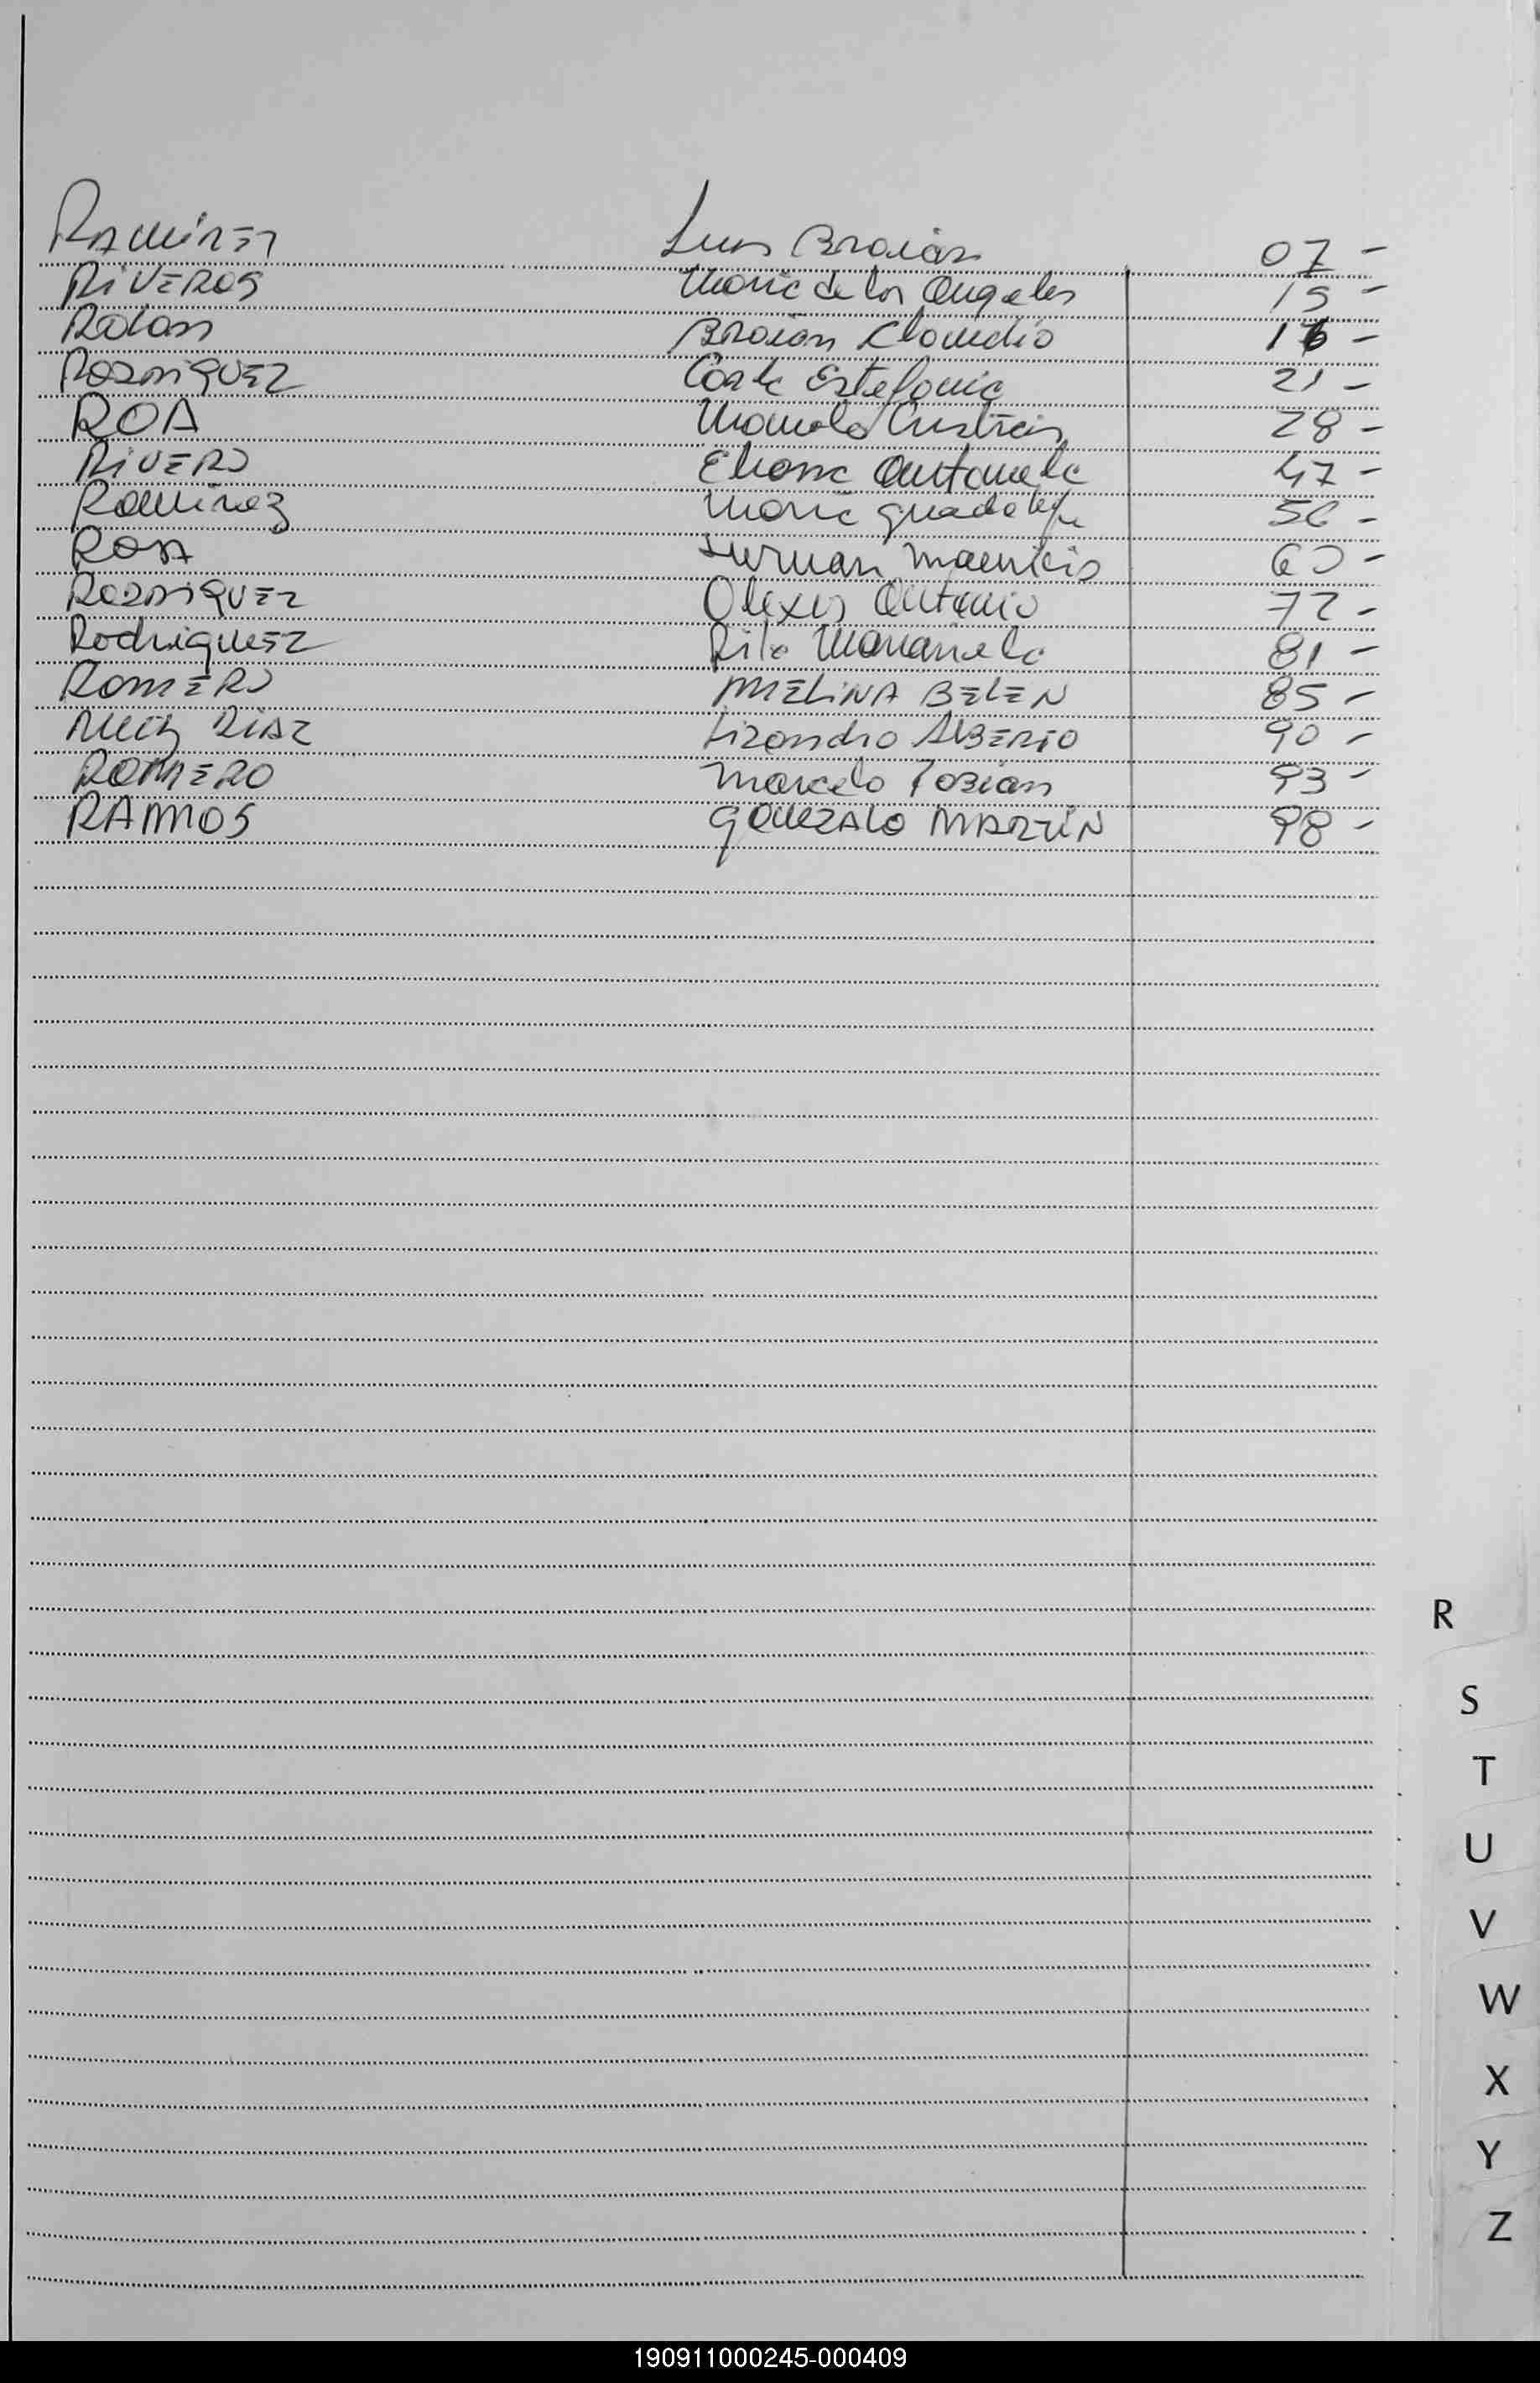 RAMIREZ Luis Braian 07 -
RIVEROS Maria de los Angeles 15 -
Rolon Braian Claudio 16 -
RODRIGUEZ Carla Estefania 21 -
ROA Cristian 28 -
RIVERO Eliana Antonela 47 -
Ramirez Maria Guadalupe 56 -
ROSA German Mauricio 60 -
RODRIGUEZ Alexis Antonio 72 -
Rodriguez Rita Marianela 81 -
ROMERO MELINA BELEN 85 -
RUIZ DIAZ Lizandro ALBERTO 90 -
ROMERO Marcelo Fabian 93 -
RAMOS GONZALO MARTIN 98 -
R
S
T
U
V
W
X
Y
Z
190911000245-000409